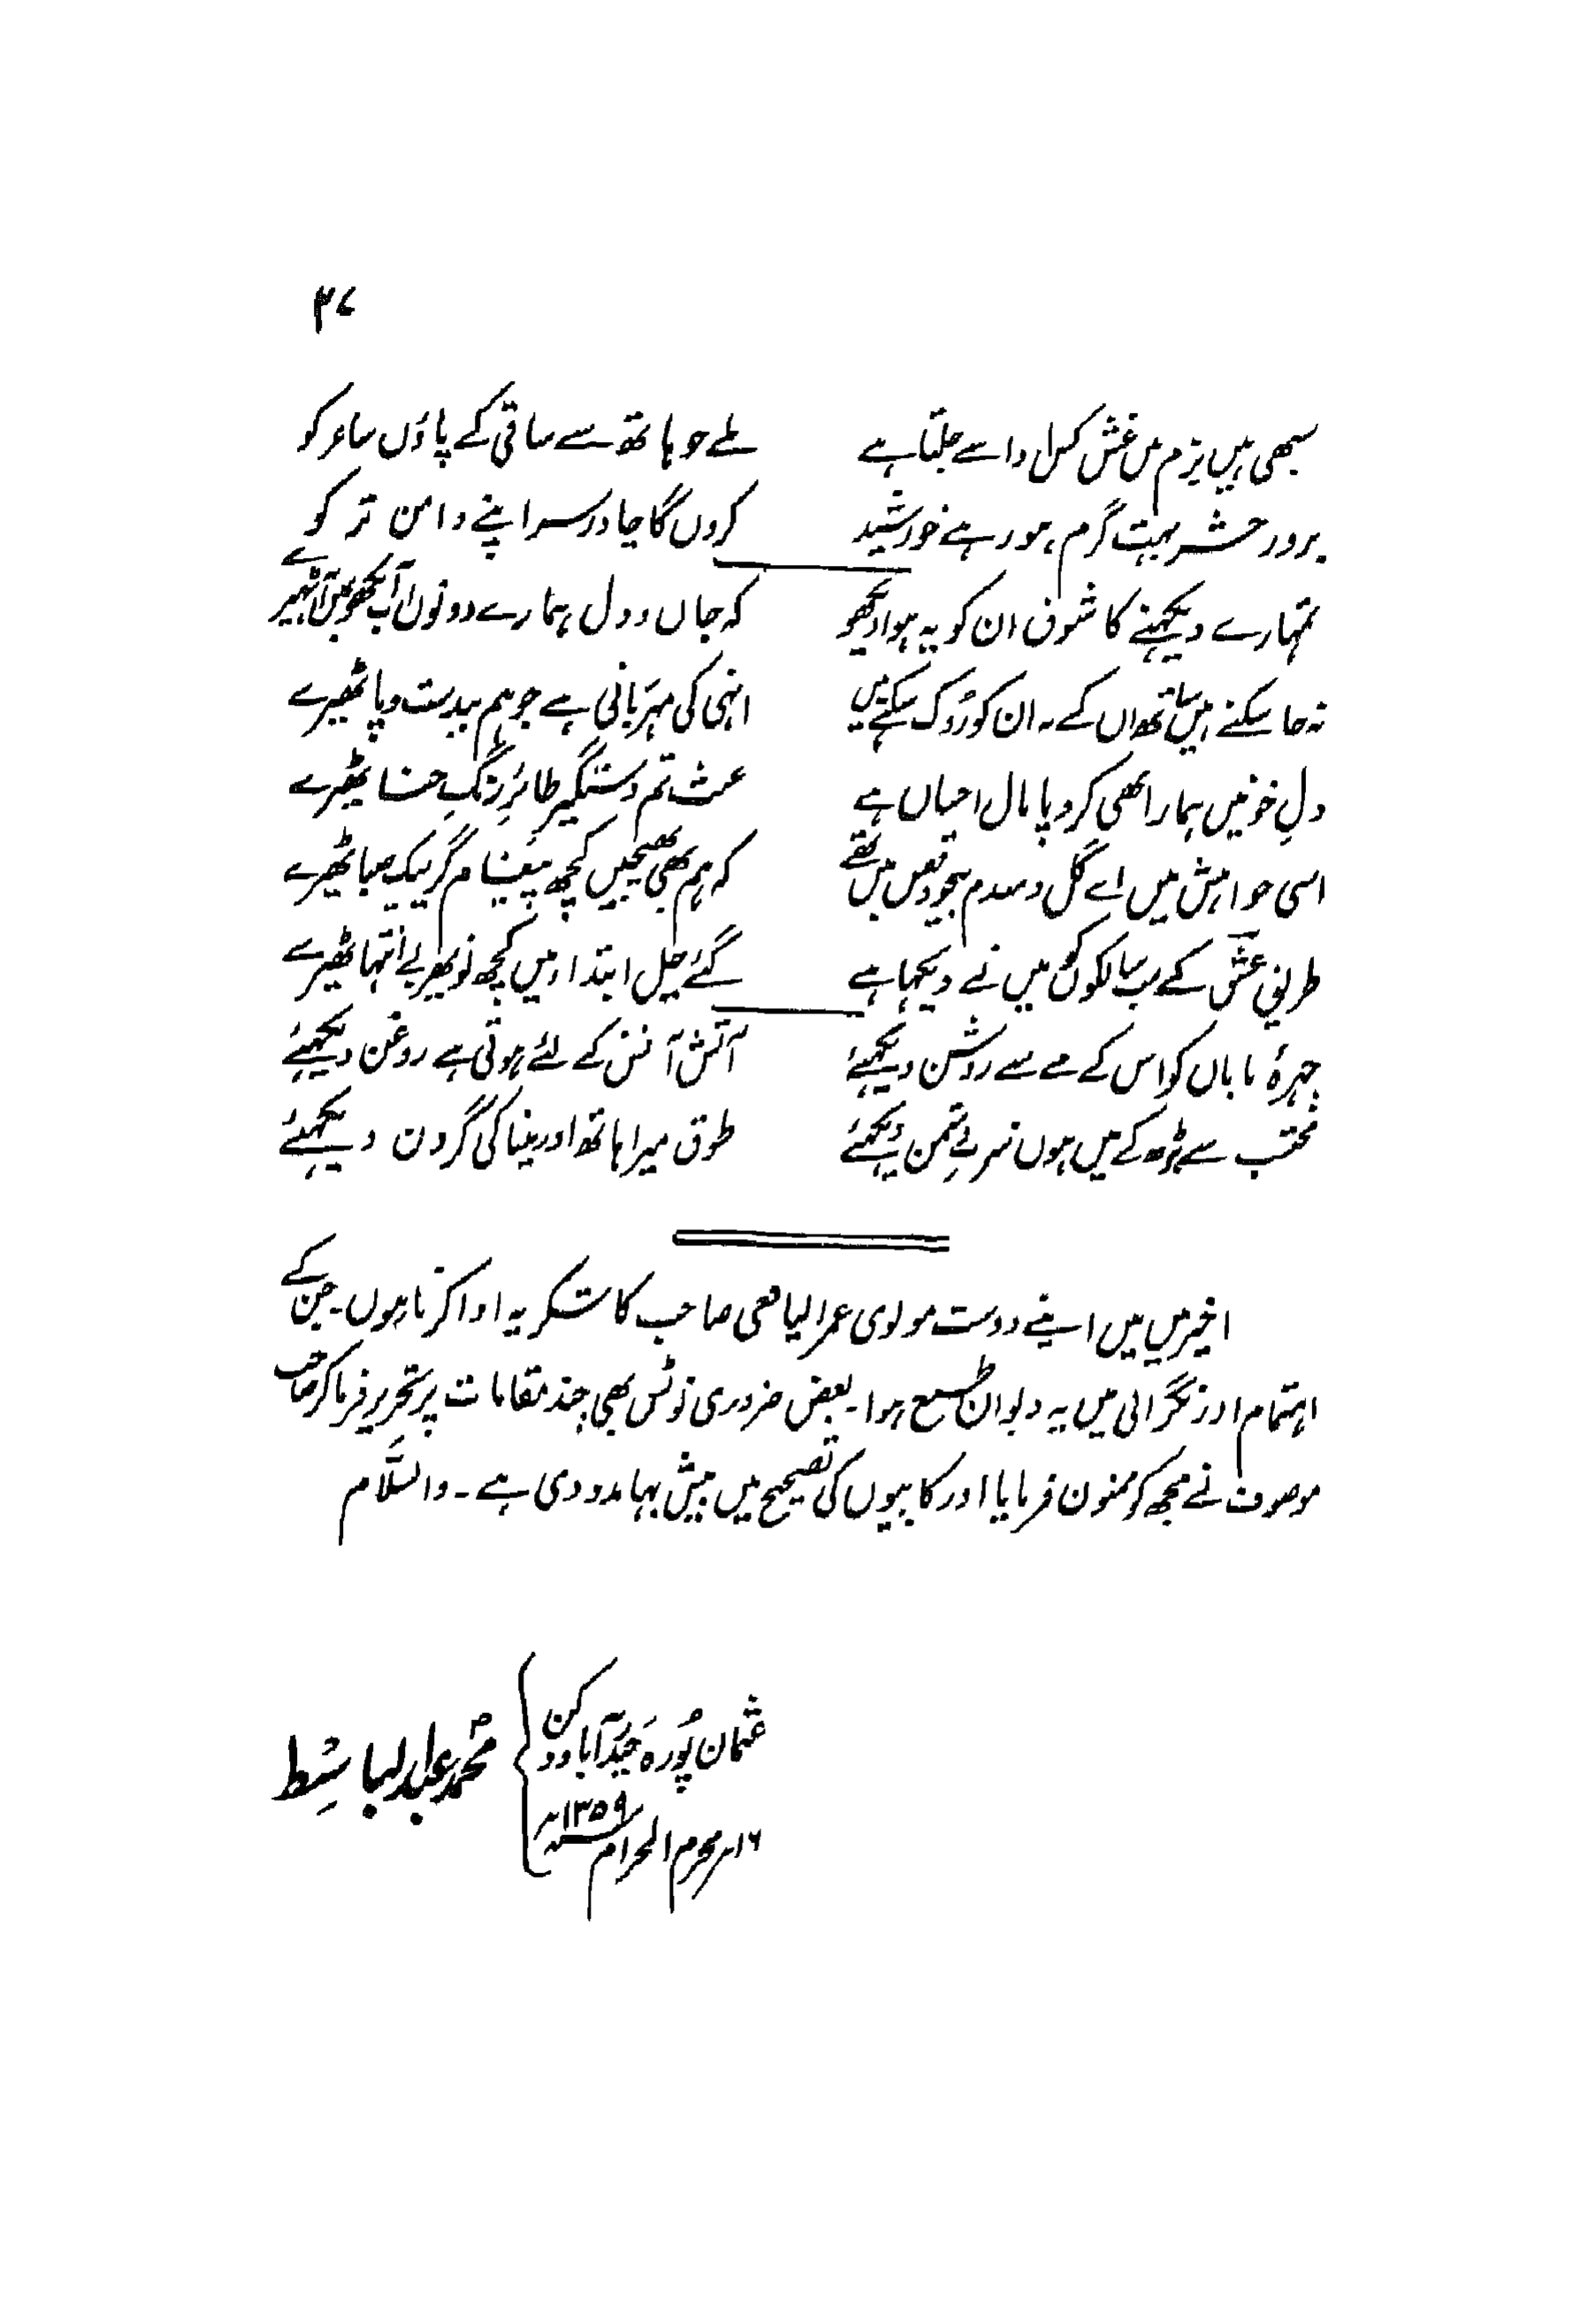 ۳۷
سبھی ہیں بزم میں غش کس ادا سے چلتا ہے ملے جو ہاتھ سے ساقی کے پاؤں ساغر کو
بروز حشر بہت گرم ہو رہے خورشید کروں گا چادر سر اپنے دامن تر کو
تمہارے دیکہنے کا شوق ان کو یہ ہوا دیکھو کہ جاں و دل ہمارے دونوں اب آنکھوں میں آ ٹھیرے
نہ جا سکتے ہیں ساتھ اں کے نہ ان کو روک سکتے ہیں انہی کی مہربانی ہے جو ہم بیدست وپا ٹھیرے
دلِ خونیں ہمارا بھی کرو پامال احساں ہے عبث تم دستگیرِ طائرِ رنگِ حنا ٹھیرے
اسی خواہش میں اے گل دمبدم بیخود قفس میں تھے کہ ہم بھی بھیجیں کچھ پیغام گر پیک صبا ٹھیرے
طریق عشق کے سب سالکوں کو میں نے دیکہا ہے گئے چل ابتدا میں کچھ تو پھر بے انتہا ٹھیرے
چہرۂ تاباں کو اس کے مے سے روشن دیکہئے آتش آفت کے لئے ہوتی ہے روغن دیکہئے
محتسب سے بڑھ کے میں ہوں شرعِ من دیکہئے طوق میرا ہاتھ اور مینا کی گردن دیکہئے
اخیر میں میں اپنے دوست مولوی عمر الیافعی صاحب کا شکریہ ادا کرتا ہوں۔ جن کے
اہتمام اور نگرانی میں یہ دیوان طبع ہوا۔ بعض ضروری نوٹس بھی چند مقامات پر تحریر فرما کر صاحب
موصوف نے مجھ کو ممنون فرمایا اور کاپیوں کی تصحیح میں بیش بہا مدد دی ہے۔ والسلام
عثمان پورہ حیدرآباد دکن
۱۶؍ محرم الحرام ۱۳۵۹ھ
محمد عبدالباسط